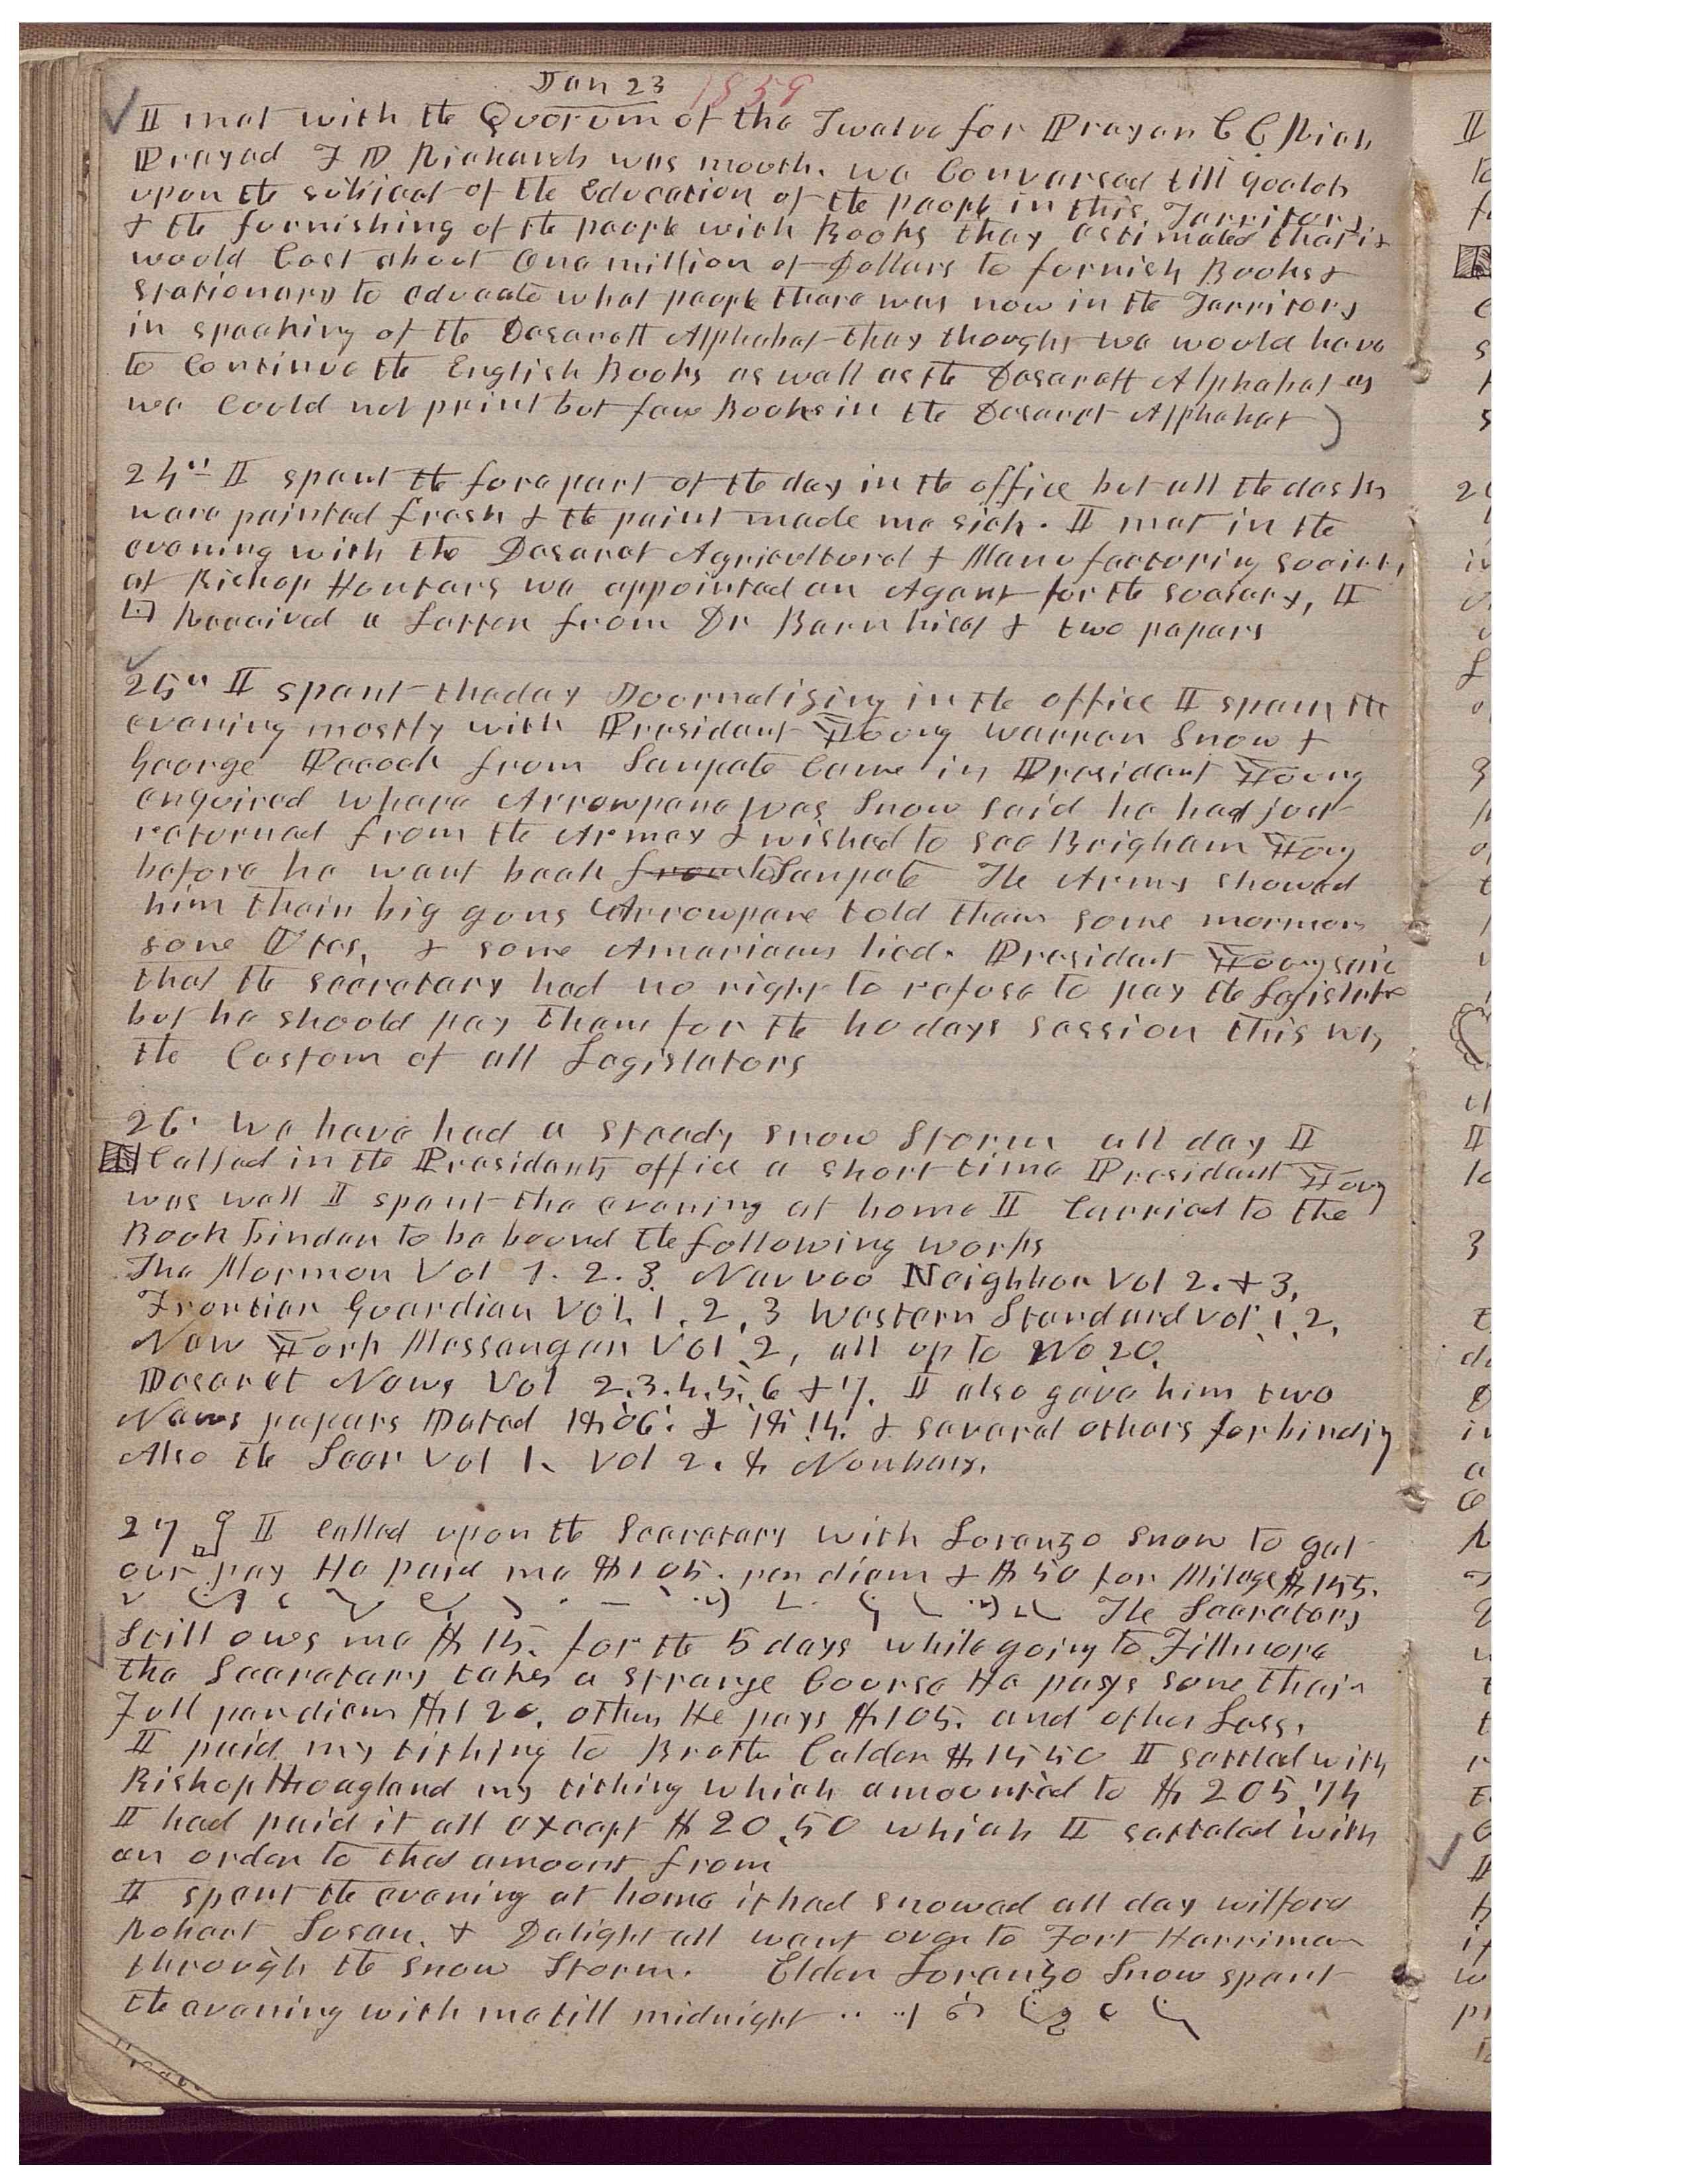 Jan 23 1859
I met with the Quorum of the Twelve for Prayer C C Rich
Prayed F D Richards was mouth. we Conversed till 9 oclok
upon the subject of the Education of the people in this Territory
& the furnishing of the people with Books they estimated that it
would Cost about One million of Dollars to furnish Books &
Stationary to educate what people there was now in the Territory
in speaking of the Deserett Alphabet they thought we would have
to Continue the English Books as well as the Deserett Alphabet as
we Could not print but few Books in the Deseret Alphabet
24th I spent the fore part of the day in the office but all the desks
were painted fresh & the paint made me sick. I met in the
evening with the Deseret Agricultural & Manufacturing Society
at Bishop Hunters we appointed an Agent for the society, I
Received a Letter from Dr Bernhisel & two papers
25th I spent the day Journalizing in the office I spent the
evening mostly with President Young Warren Snow &
George Peacock from Sanpete Came in President Young
enquired where Arrowpene was Snow said he had just
returned from the Armey & wished to see Brigham Young
before he went back from to Sanpete The Army showed
him their big guns Arrowpene told them some mormons
some Utes, & some Americans lied. President Young said
that the secretary had no right to refuse to pay the Legislature
but he should pay them for the 40 days session this was
the Custom of all Legislators
26. We have had a steady snow Storm all day I
Called in the Presidents office a short time President Young
was well I spent the evening at home I Carried to the
Book binder to be bound the following works
The Mormon Vol 1. 2. 3. Nauvoo Neighbor Vol 2. & 3,
Frontier Guardian Vol. 1. 2, 3 Western Standard vol 1. 2,
New York Messenger Vol 2, all up to No 20.
Deseret News Vol 2. 3. 4. 5. 6 & 7. I also gave him two
News papers Dated 1806. & 1814. & several others for binding
Also the Seer Vol 1. Vol 2. 8 Numbers.
27 I Called upon the Secretary with Lorenzo Snow to get
our pay He paid me $105. per diem & $50 for Milage $155.
The Secretary
Still ows me $15. for the 5 days while going to Fillmore
the Secretary takes a strange Course He pays some their
Full per diem $120. others He pays $105. and other Less.
I paid my tithing to Brother Calder $15 50 I settled with
Bishop Hoagland my tithing which amounted to $205,74
I had paid it all except $20,50 which I settled with
an order to that amount from
I spent the evening at home it had snowed all day Wilford
Robert Susan. & Delight all went over to Fort Harriman
through the snow Storm. Elder Lorenzo Snow spent
the evening with me till midnight